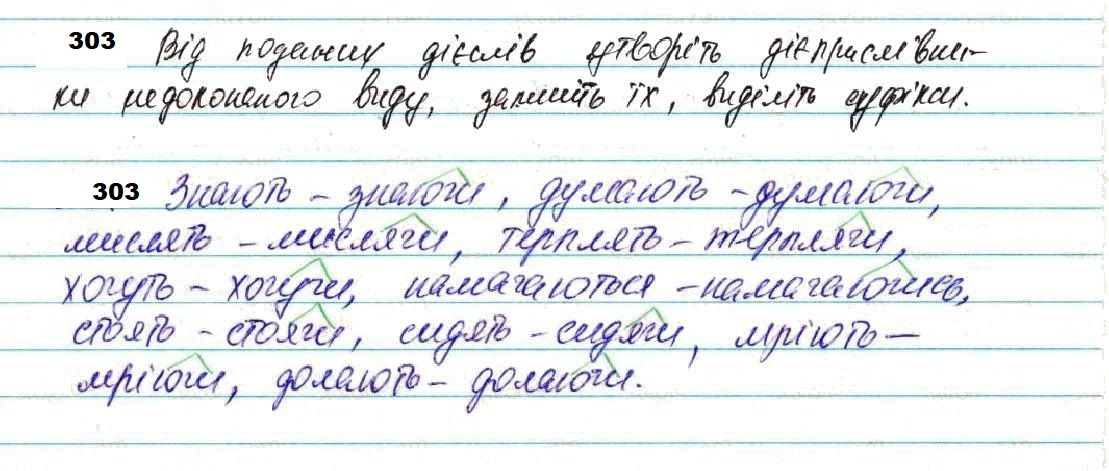 303 Від поданих дієслів утворіть дієприслівни-
ки недоконаного виду, запишіть їх, виділіть суфікси.
303 Знають – знаючи, думають – думаючи,
мислять – мислячи, терплять – терплячи,
хочуть – хочучи, намагаються – намагаючись,
стоять – стоячи, сидять – сидячи, мріють –
мріючи, долають – долаючи.